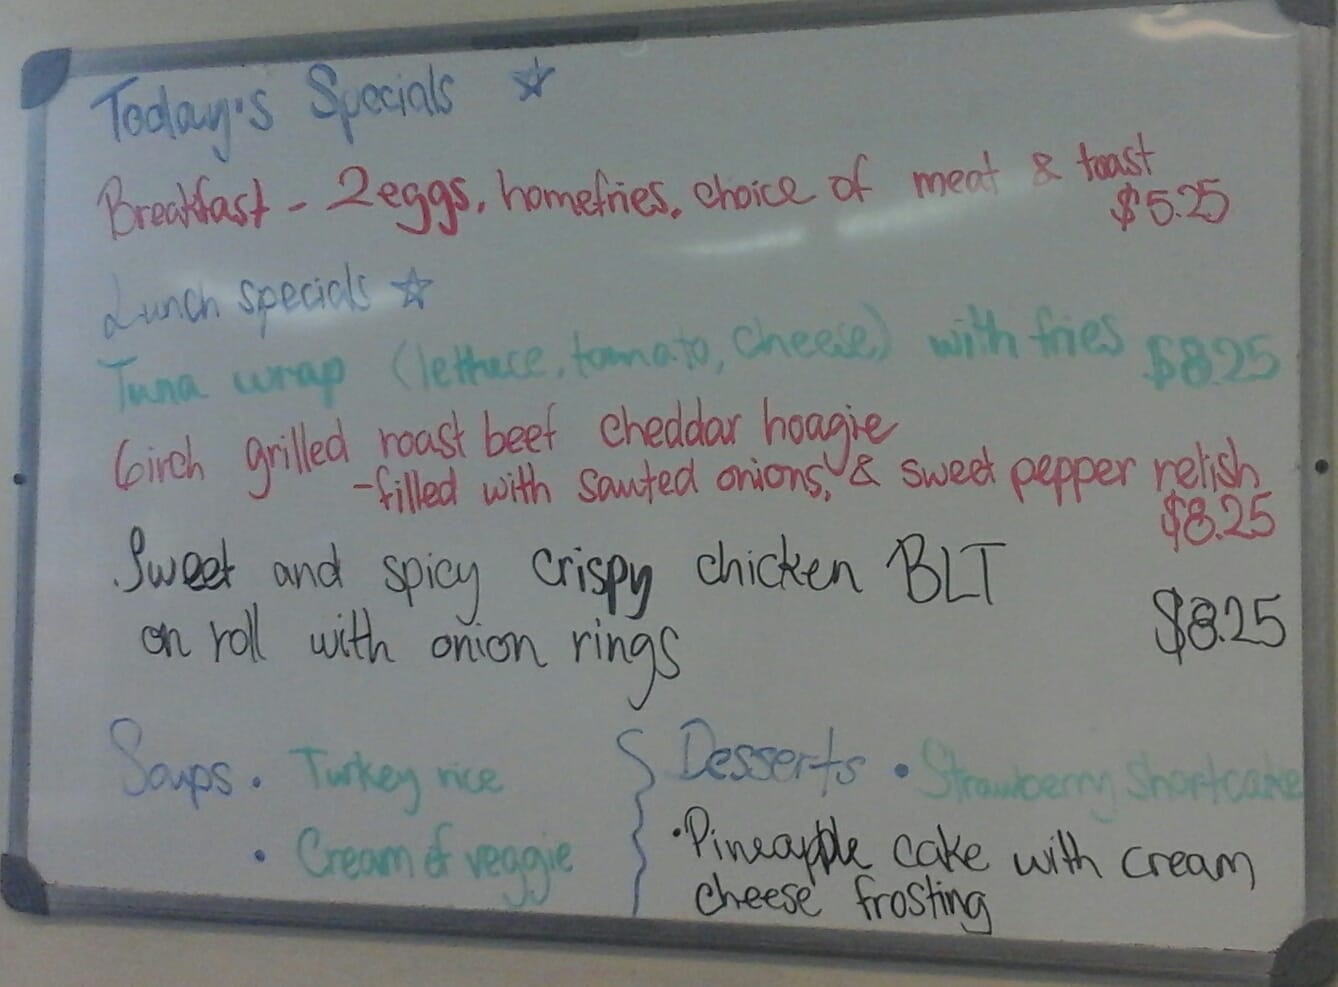 Today's Specials ☆
Breakfast - 2 eggs, homefries, choice of meat & toast
$5.25
Lunch specials ☆
Tuna wrap (lettuce, tomato, cheese) with fries $8.25
6inch grilled roast beef cheddar hoagie
-filled with sauted onions, & sweet pepper relish
$8.25
Sweet and spicy crispy chicken BLT
on roll with onion rings $8.25
Soups • Turkey rice
• Cream of veggie
Desserts • Strawberry Shortcake
• Pineapple cake with cream
cheese frosting